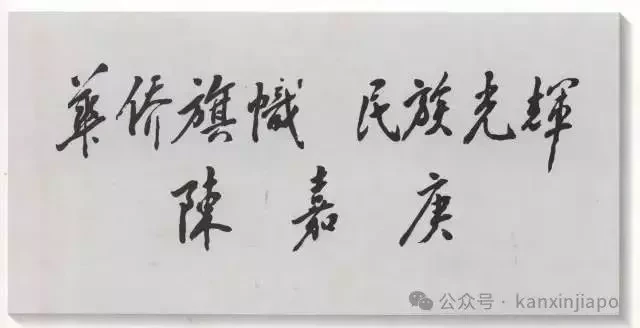 華侨旗幟 民族光輝
陳嘉庚
公众号 · kanxinjiapo